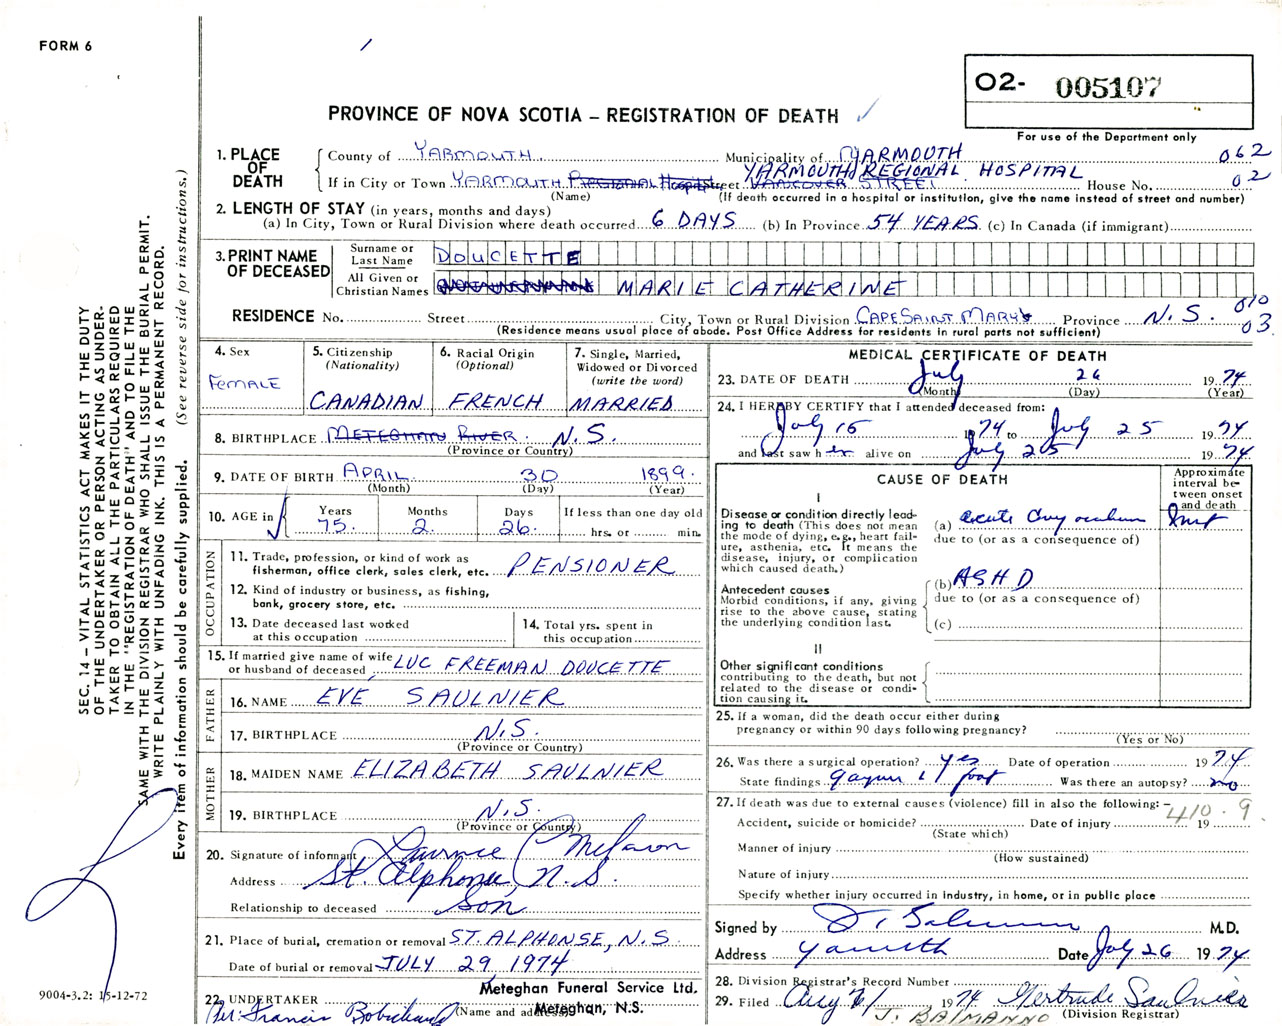 FORM 6
02- 005107
PROVINCE OF NOVA SCOTIA – REGISTRATION OF DEATH
For use of the Department only
1. PLACE OF DEATH
County of YARMOUTH Municipality of YARMOUTH 062
If in City or Town YARMOUTH REGIONAL HOSPITAL Street VANCOVER STREET YARMOUTH REGIONAL HOSPITAL House No. 02
(Name) (If death occurred in a hospital or institution, give the name instead of street and number)
2. LENGTH OF STAY (in years, months and days)
(a) In City, Town or Rural Division where death occurred 6 DAYS (b) In Province 54 YEARS (c) In Canada (if immigrant)
3. PRINT NAME OF DECEASED
Surname or Last Name DOUCETTE
All Given or Christian Names MARIE CATHERINE
RESIDENCE No. Street City, Town or Rural Division CAPE SAINT MARY'S Province N.S. 010 03
(Residence means usual place of abode. Post Office Address for residents in rural parts not sufficient)
4. Sex FEMALE
5. Citizenship (Nationality) CANADIAN
6. Racial Origin (Optional) FRENCH
7. Single, Married, Widowed or Divorced (write the word) MARRIED
8. BIRTHPLACE METEGHAN RIVER N.S.
(Province or Country)
9. DATE OF BIRTH APRIL 30 1899
(Month) (Day) (Year)
10. AGE in Years 75 Months 2 Days 26 If less than one day old hrs. or min.
OCCUPATION
11. Trade, profession, or kind of work as fisherman, office clerk, sales clerk, etc. PENSIONER
12. Kind of industry or business, as fishing, bank, grocery store, etc.
13. Date deceased last worked at this occupation
14. Total yrs. spent in this occupation
15. If married give name of wife or husband of deceased LUC FREEMAN DOUCETTE
FATHER
16. NAME EVE SAULNIER
17. BIRTHPLACE N.S.
(Province or Country)
MOTHER
18. MAIDEN NAME ELIZABETH SAULNIER
19. BIRTHPLACE N.S.
(Province or Country)
20. Signature of informant
Address St. Alphonse, N.S.
Relationship to deceased Son
21. Place of burial, cremation or removal ST. ALPHONSE, N.S.
Date of burial or removal JULY 29, 1974
22. UNDERTAKER Meteghan Funeral Service Ltd.
Per: Francis (Name and address) Meteghan, N.S.
MEDICAL CERTIFICATE OF DEATH
23. DATE OF DEATH July 26 1974
(Month) (Day) (Year)
24. I HEREBY CERTIFY that I attended deceased from:
July 15 1974 to July 25 1974
and last saw her alive on July 25 1974
CAUSE OF DEATH
Approximate interval between onset and death
I
Disease or condition directly leading to death (This does not mean the mode of dying, e.g., heart failure, asthenia, etc. It means the disease, injury, or complication which caused death.)
(a) acute
due to (or as a consequence of)
Antecedent causes
Morbid conditions, if any, giving rise to the above cause, stating the underlying condition last.
(b) ASHD
due to (or as a consequence of)
(c)
II
Other significant conditions contributing to the death, but not related to the disease or condition causing it.
25. If a woman, did the death occur either during pregnancy or within 90 days following pregnancy?
(Yes or No)
26. Was there a surgical operation? yes Date of operation 1974
State findings foot Was there an autopsy? no
27. If death was due to external causes (violence) fill in also the following: – 410.9
Accident, suicide or homicide? Date of injury 19
(State which)
Manner of injury
(How sustained)
Nature of injury
Specify whether injury occurred in industry, in home, or in public place
Signed by M.D.
Address Yarmouth Date July 26 1974
28. Division Registrar's Record Number
29. Filed Aug 1974 Gertrude Saulnier
J. BALMANNO (Division Registrar)
SEC. 14 – VITAL STATISTICS ACT MAKES IT THE DUTY
OF THE UNDERTAKER OR PERSON ACTING AS UNDER-
TAKER TO OBTAIN ALL THE PARTICULARS REQUIRED
IN THE "REGISTRATION OF DEATH" AND TO FILE THE
SAME WITH THE DIVISION REGISTRAR WHO SHALL ISSUE THE BURIAL PERMIT.
WRITE PLAINLY WITH UNFADING INK. THIS IS A PERMANENT RECORD.
Every item of information should be carefully supplied. (See reverse side for instructions.)
9004-3.2: 15-12-72